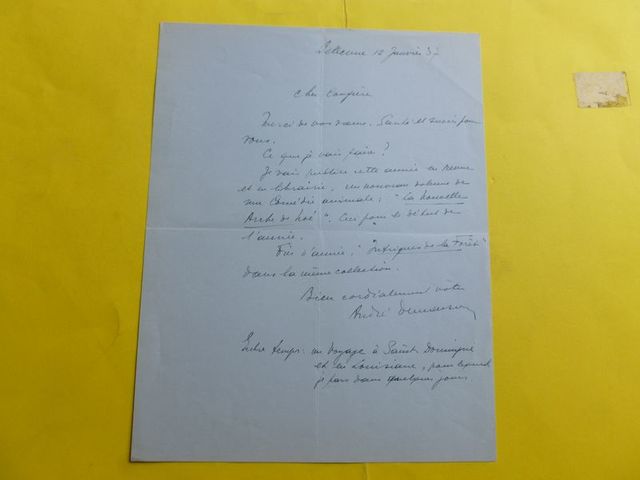 12 Janvier 37
Cher confrère
Merci de vos vœux. Santé et succès pour
vous.
Ce que je vais faire ?
Je vais publier cette année en revue
et en librairie, un nouveau volume de
ma Comédie animale ; "La Nouvelle
Arche de Noé". Ceci pour le début de
l'année.
Fin d'année, "Intrigues de la Forêt"
dans la même collection.
Bien cordialement vôtre
André Demaison
Entre temps : un voyage à Saint Domingue
et en Louisiane, pour lequel
je pars dans quelques jours